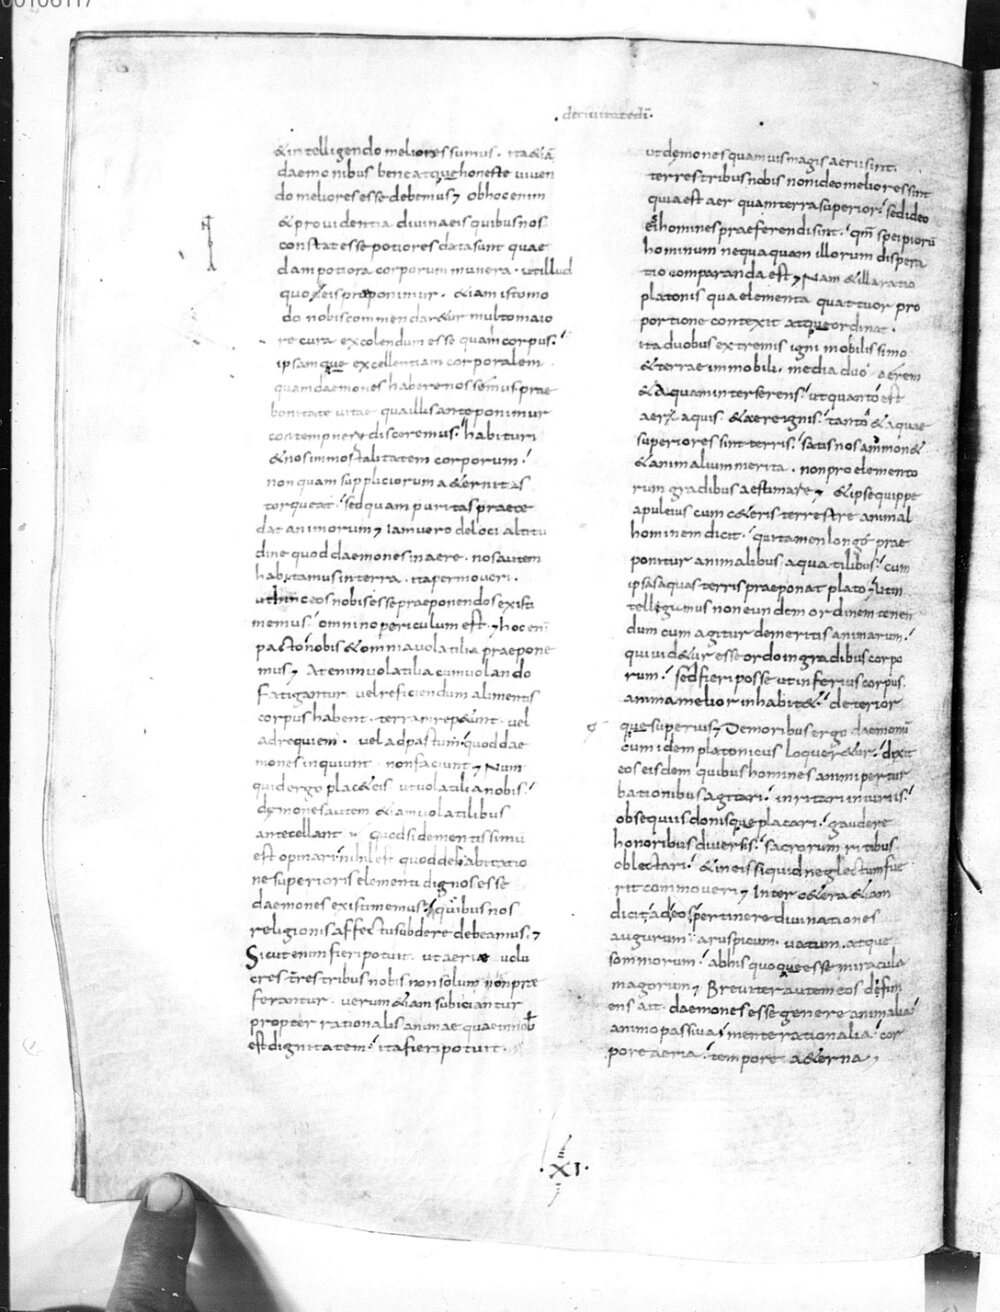 00106117
de ciuitate dī.
& intelligendo meliores sumus. ita &iā
daemonibus bene atque honeste uiuen
do meliores esse debemus; ob hoc enim
& prouidentia diuina eis quibus nos
constat esse potiores data sunt quae
dam potiora corporum munera. ut illud
quo eis praeponimur. &iam isto mo
do nobis commendar&ur multo maio
re cura excolendum esse quam corpus.
ipsamque excellentiam corporalem
quam daemones habere nossemus prae
bonitate uitae qua illis anteponimur
contempnere disceremus. habituri
& nos inmortalitatem corporum.
non quam suppliciorum a&ernitas
torqueat. sed quam puritas praece
dat animorum; Iam uero de loci altitu
dine quod daemones in aere. nos autem
habitamus in terra. ita permoueri.
ut hinc eos nobis esse praeponendos existi
memus. omnino ridiculum est; hoc eni
pacto nobis & omnia uolatilia praepone
mus; At enim uolatilia cum uolando
fatigantur. uel reficiendum alimentis
corpus habent. terram rep&unt. uel
ad requiem. uel ad pastum. quod dae
mones inquiunt non faciunt; Num
quid ergo plac& eis. ut uolatilia nobis.
demones autem &iam uolatilibus
antecellant. quod si dementissimū
est opinari nihil est quod de habitatio
ne superioris elementi dignos esse
daemones existimemus. quibus nos
religionis affectu subdere debeamus;
Sicut enim fieri potuit. ut aeriae uolu
cres terrestribus nobis non solum non prae
ferantur. uerum &iam subiciantur
propter rationalis animae quae in nob
est dignitatem. ita fieri potuit.
ut demones quamuis magis aerii sint.
terrestribus nobis non ideo meliores sint
quia est aer quam terra superior. sed ideo
eis homines praeferendi sint. qm spei piorū
hominum nequaquam illorum dispera
tio comparanda est; Nam & illa ratio
platonis qua elementa quattuor pro
portione contexit atque ordinat.
ita duobus extremis igni mobilissimo
& terrae immobili. media duo aerem
& Aquam interserens. ut quanto est
aer aquis. & aere ignis. tanto & aquae
superiores sint terris. satis nos ammon&
& animalium merita. non pro elemento
rum gradibus aestimare; & ipse quippe
apuleius cum c&eris terrestre animal
hominem dicit. qui tamen longe prae
ponitur animalibus aquatilibus. cum
ipsas aquas terris praeponat plato; ut in
tellegamus non eundem ordinem tenen
dum cum agitur de meritis animarum.
qui uid&ur esse ordo in gradibus corpo
rum. sed fieri posse ut inferius corpus.
anima melior inhabit&. deterior
que superius; De moribus ergo daemonū
cum idem platonicus loquer&ur. dixit
eos eisdem quibus homines animi pertur
bationibus agitari. inritari iniuriis.
obsequiis donisque placari. gaudere
honoribus diuersis. sacrorum ritibus
oblectari. & in eis si quid neglectum fue
rit commoueri; Inter c&era &iam
dicit ad eos pertinere diuinationes
augurum. aruspicum. uatum. atque
somniorum. ab his quoque esse miracula
magorum; Breuiter autem eos defini
ens ait. daemones esse genere animalia.
animo passiua. mente rationalia. cor
pore aeria. tempore a&erna;
.XI.